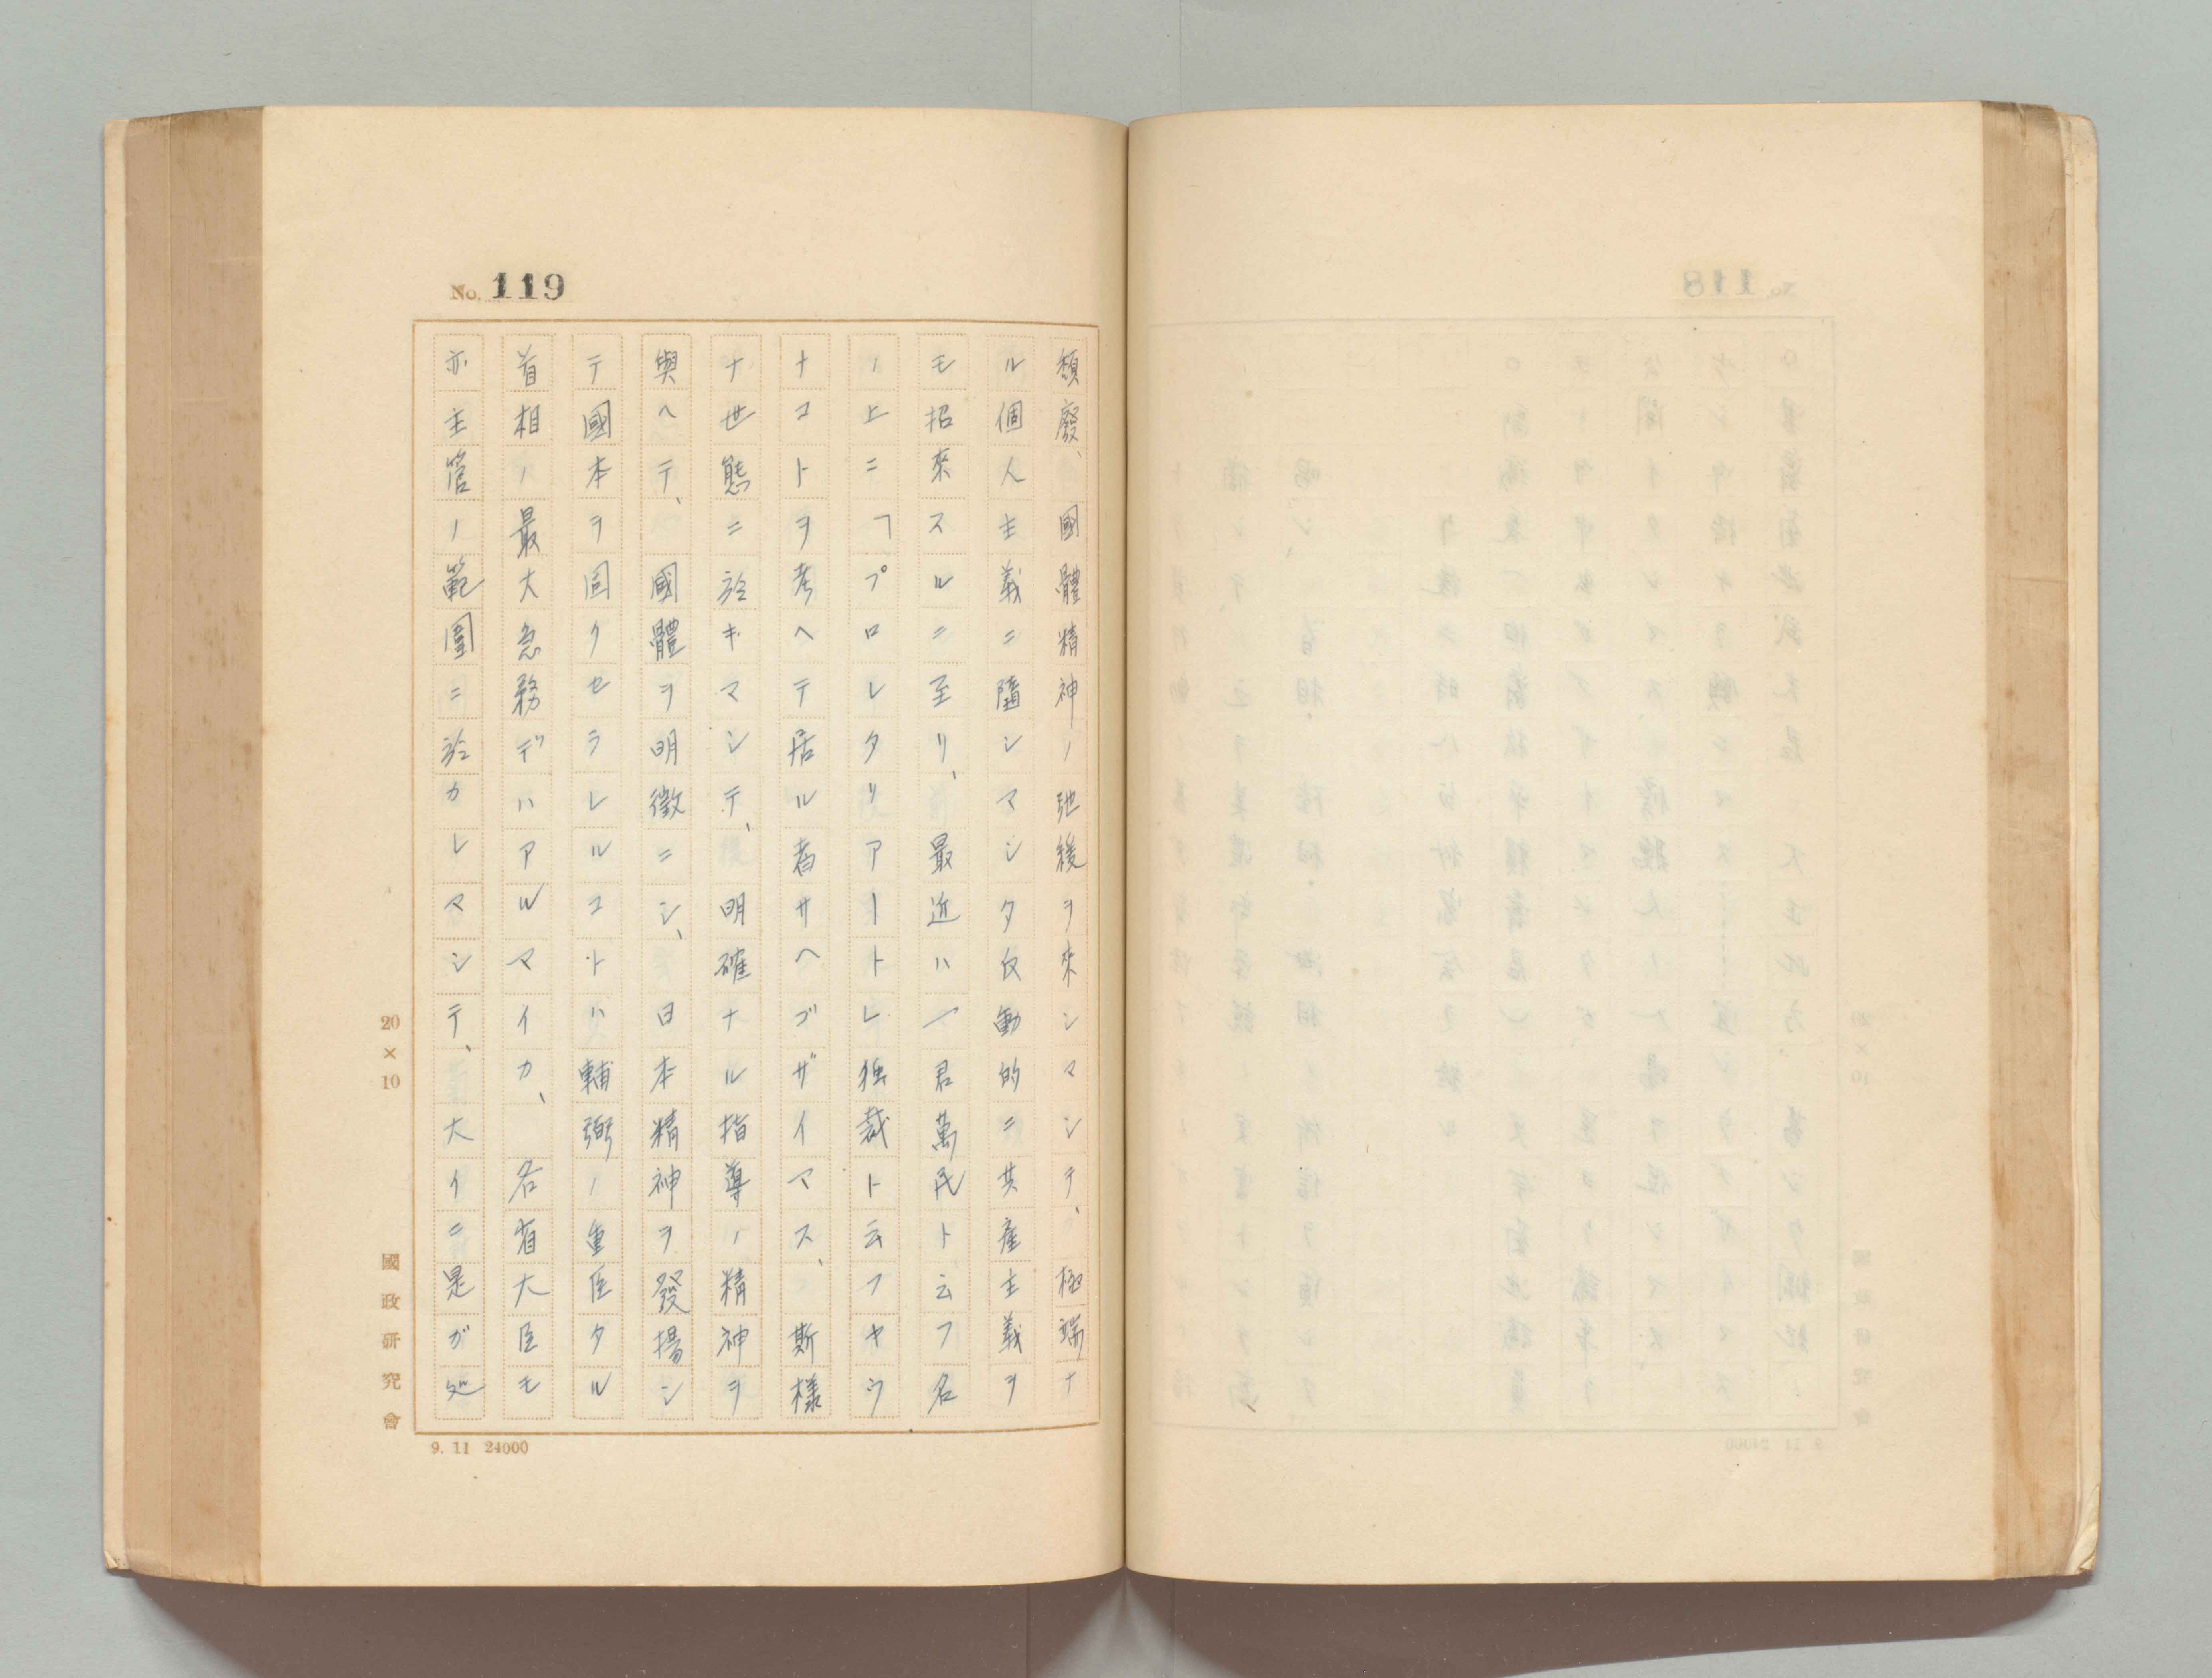 No. 119
頽廢、國體精神ノ弛緩ヲ來シマシテ、極端ナ
ル個人主義ニ隨シマシタ反動的ニ共産主義ヲ
モ招來スルニ至リ、最近ハ一君萬民ト云フ名
ノ上ニ「プロレタリアートレ獨裁ト云フヤウ
ナコトヲ考ヘテ居ル者サヘゴザイマス、斯様
ナ世態ニ於キマシテ、明確ナル指導ノ精神ヲ
與ヘテ、國體ヲ明徴ニシ、日本精神ヲ發揚シ
テ國本ヲ固クセラレルコトハ輔弼ノ重臣タル
首相ノ最大急務デハアルマイカ、各省大臣モ
亦主管ノ範圍ニ於カレマシテ、大イニ是ガ処
20×10
國政研究會
9.11 24000